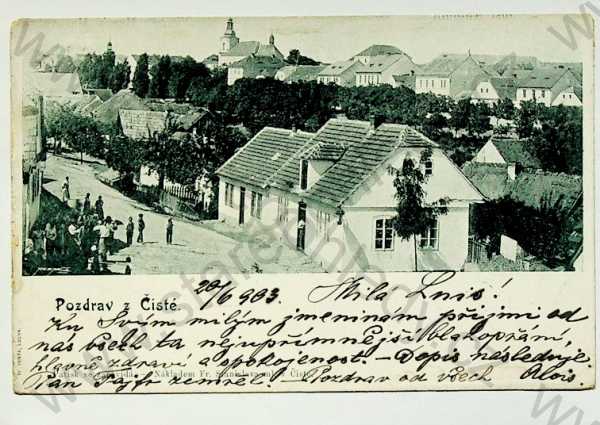 Pozdrav z Čisté. 20/6 903. Milá
Ku Svým milým jmeninám přijmi od
nás všech ta nejupřímnější blahopřání,
hlavně zdraví a spokojenost. - Dopis následuje.
Pan zemřel. - Pozdrav od všech Alois.
Nákladem Fr.